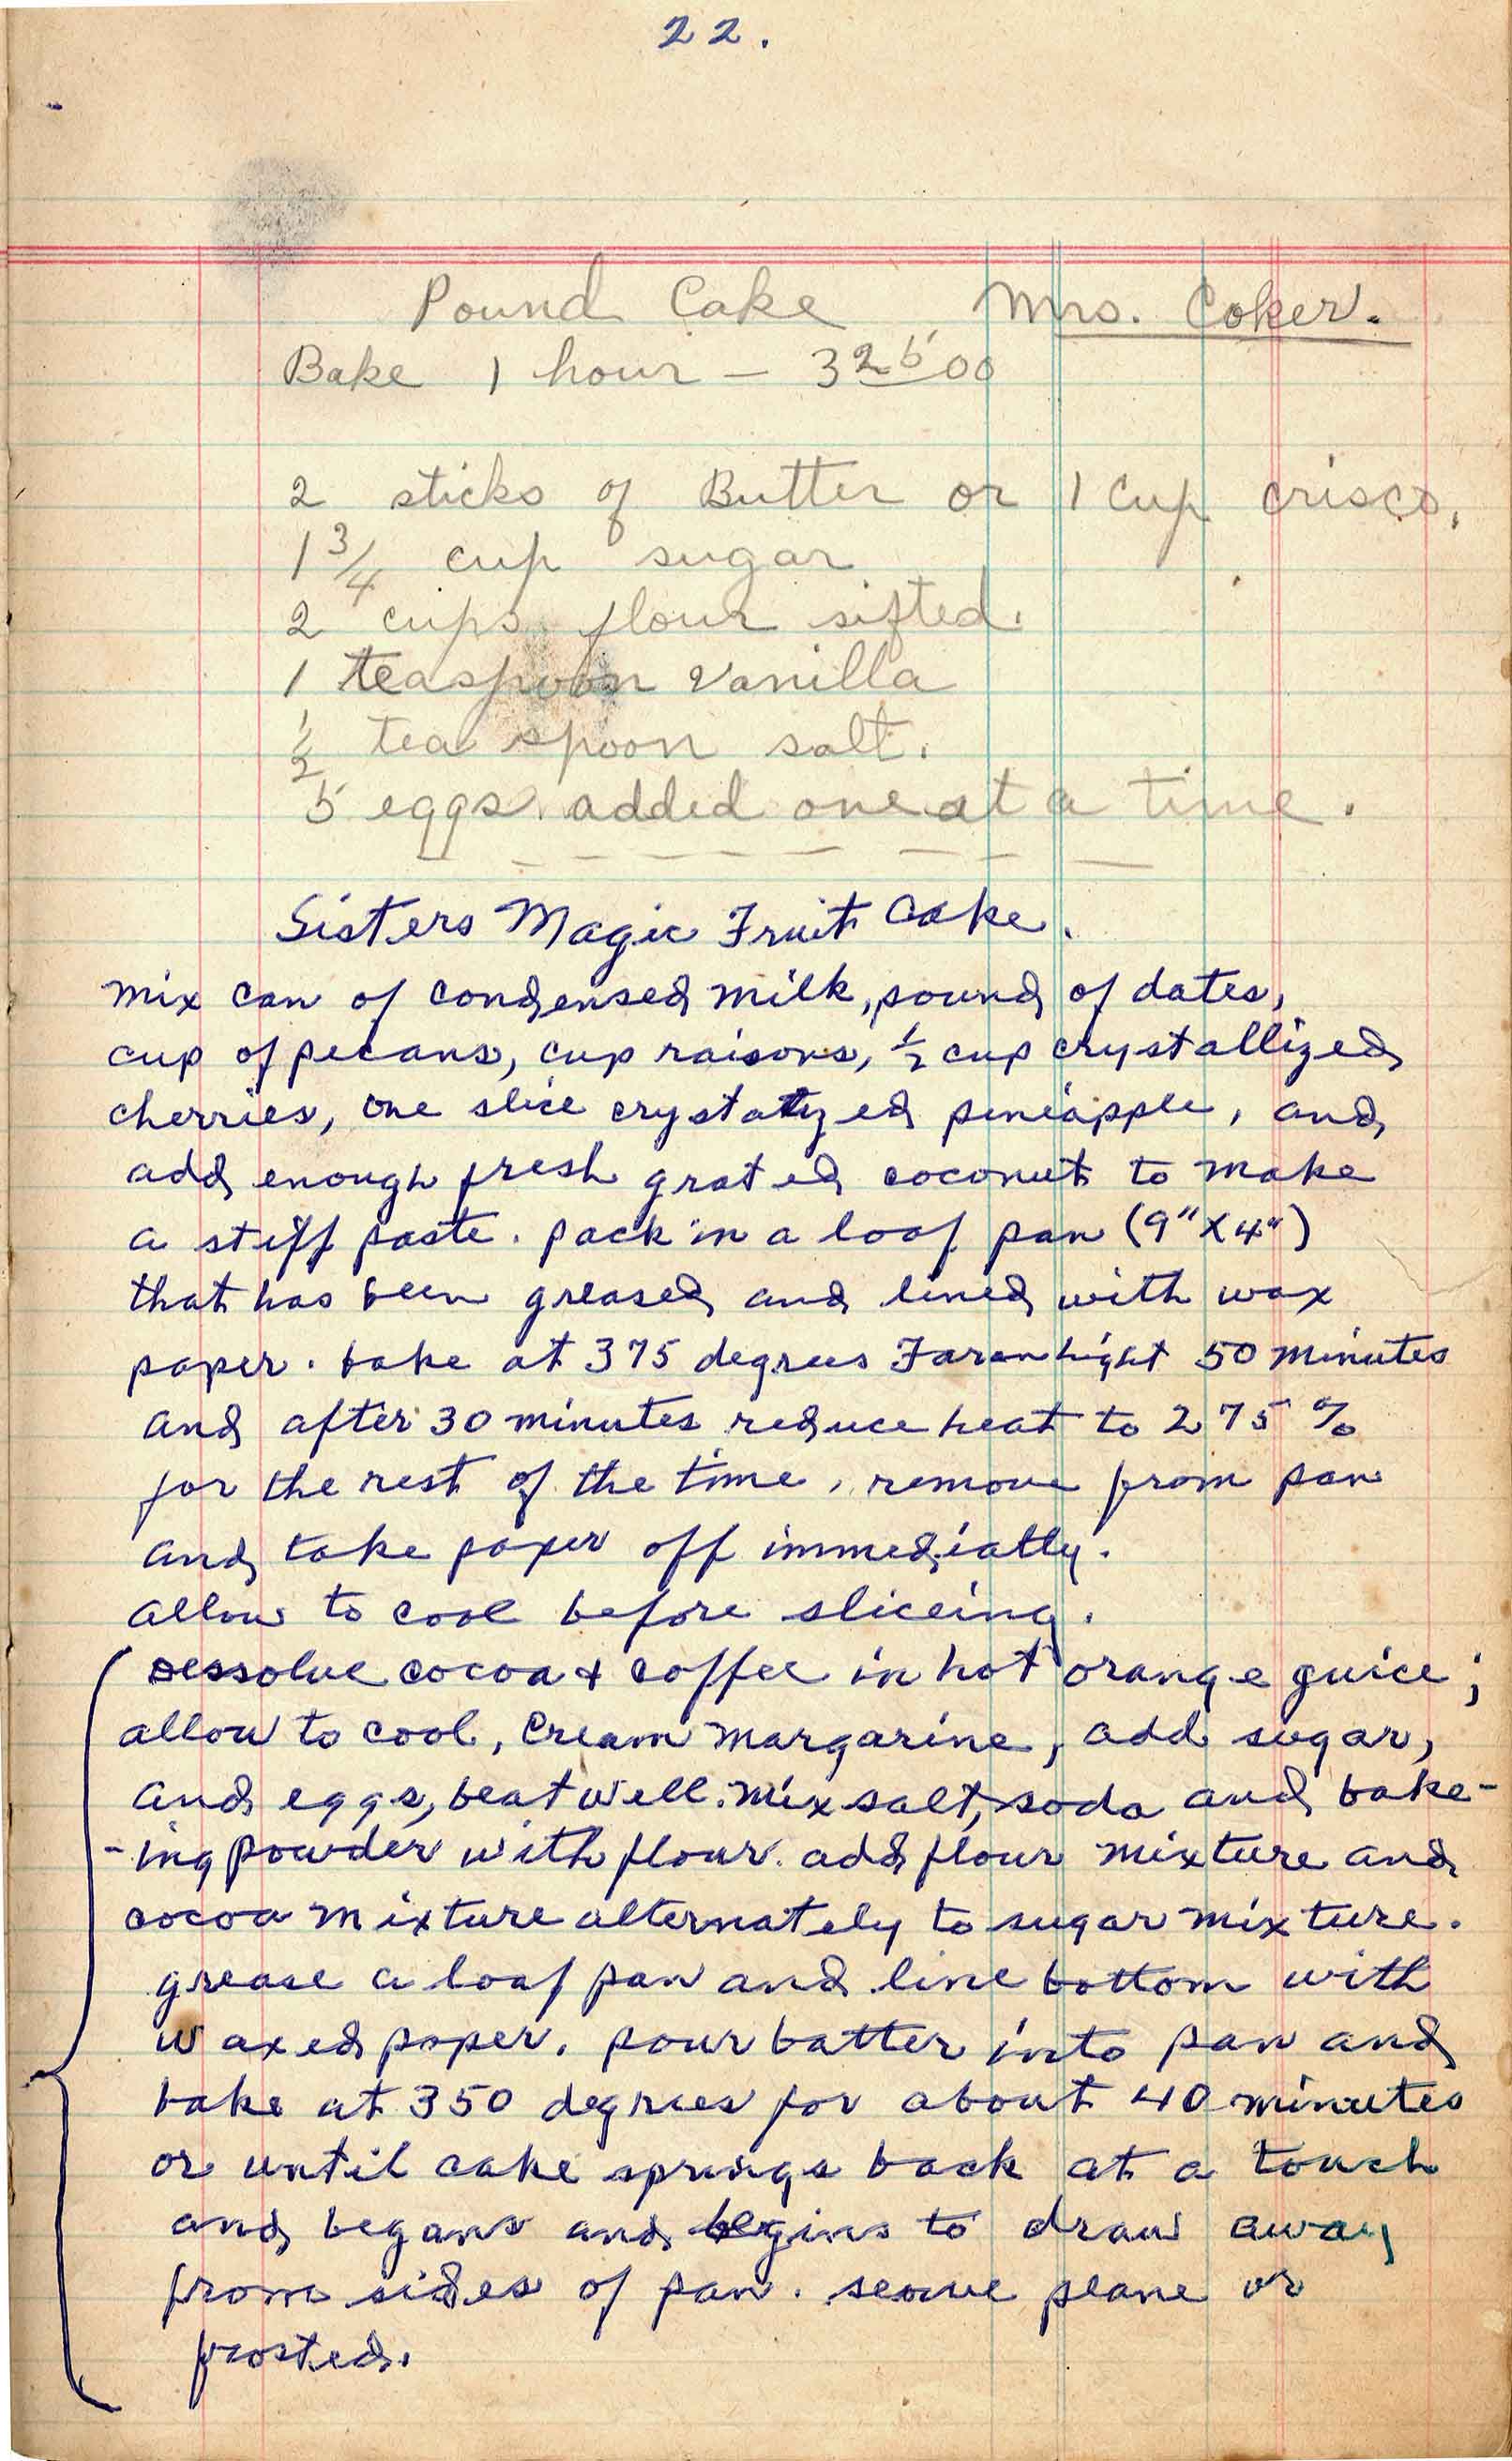 22.
Pound Cake Mrs. Coker.
Bake 1 hour - 32500
2 sticks of Butter or 1 Cup crisco.
1 3/4 cup sugar
2 cups flour sifted.
1 teaspoon vanilla
1/2 tea spoon salt.
5 eggs added one at a time.
Sisters Magic Fruit Cake.
mix can of condensed milk, pound of dates,
cup of pecans, cup raisons, 1/2 cup crystallized
cherries, one slice crystatyzed pineapple, and
add enough fresh grated coconut to make
a stiff paste. pack in a loaf pan (9" X 4")
that has been greased and lined with wax
paper. bake at 375 degrees Faranhight 50 minutes
and after 30 minutes reduce heat to 275 %
for the rest of the time, remove from pan
and take paper off immediatly.
allow to cool before sliceing.
Dessolve cocoa & coffee in hot orange guice;
allow to cool, Cream margarine, add sugar,
and eggs, beat well. mix salt, soda and bake-
-ing powder with flour. add flour mixture and
cocoa mixture alternately to sugar mixture.
grease a loaf pan and line bottom with
waxed paper. pour batter into pan and
bake at 350 degrees for about 40 minutes
or until cake springs back at a touch
and begans and begins to draw away
from sides of pan. searve plane or
frosted.